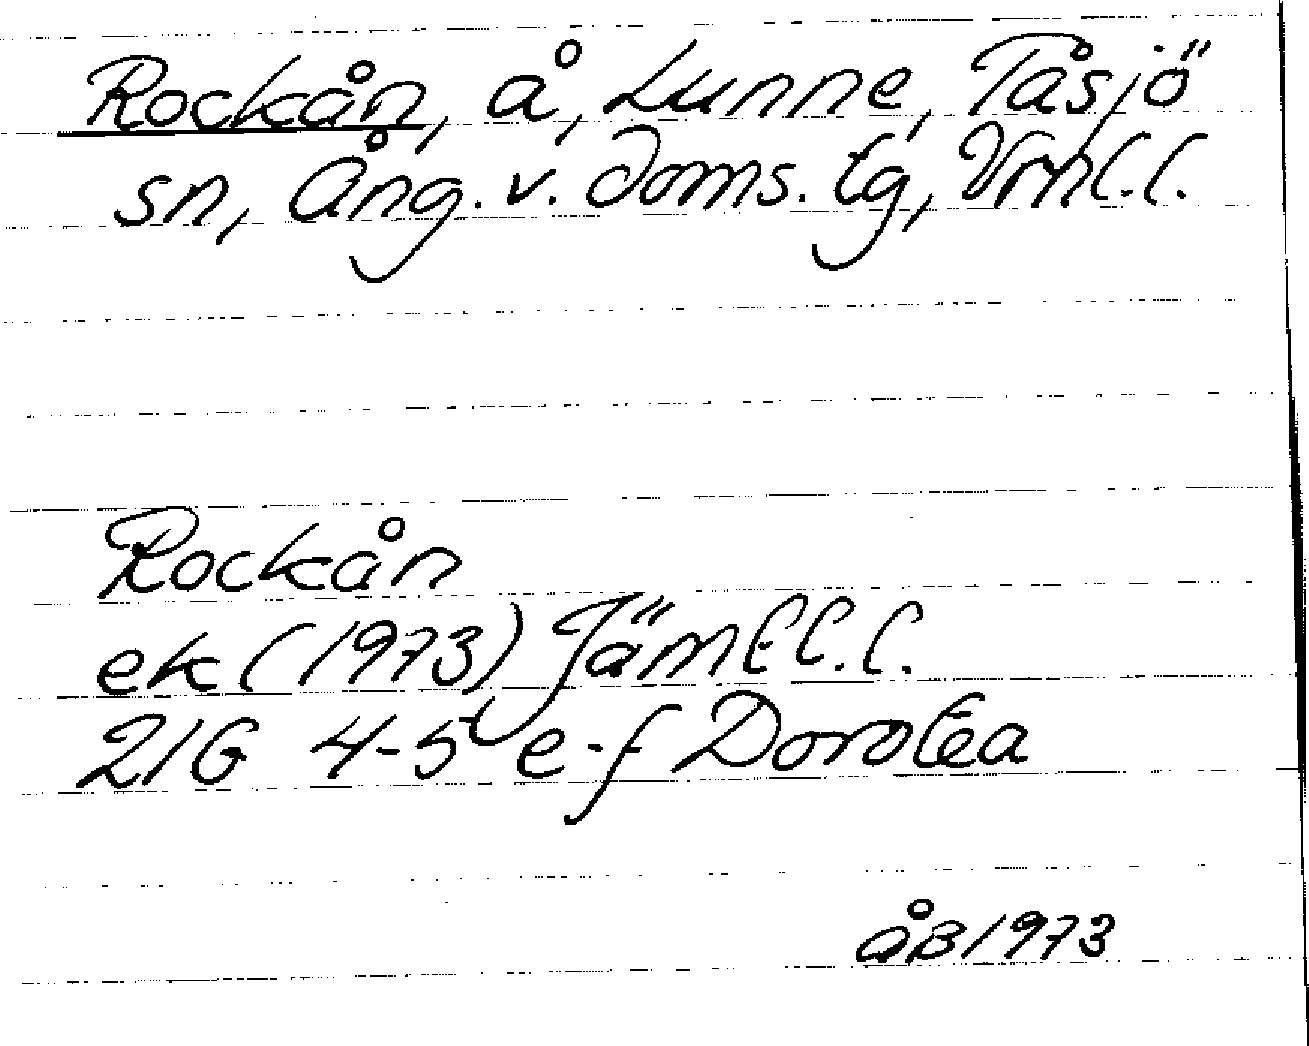 Rockån, å, Lunne, Tåsjö
sn, Ång. v. doms. tg, Vrnl.l.
Rockån
ek (1973) Jämtl.l.
21G 4-5 e-f Dorotea
åB 1973